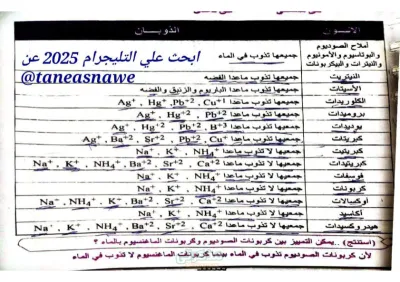 الأيـــون الذوبـــان
أملاح الصوديوم والبوتاسيوم والأمونيوم والنيترات والبيكربونات جميعها تذوب في الماء
ابحث علي التليجرام 2025 عن
@taneasnawe
النيتريت جميعها تذوب ماعدا الفضه
الأسيتات جميعها تذوب ماعدا الباريوم والزئبق والفضه
الكلوريدات جميعها تذوب ماعدا Ag⁺ , Hg⁺ , Pb⁺² , Cu⁺¹
بروميدات جميعها تذوب ماعدا Ag⁺ , Hg⁺² , Pb⁺²
يوديدات جميعها تذوب ماعدا Ag⁺ , Hg⁺² , Pb⁺² , B⁺³
كبريتات جميعها تذوب ماعدا Ag⁺ , Ba⁺² , Sr⁺² , Pb⁺² , Ca⁺²
كبريتيت جميعها لا تذوب ماعدا Na⁺ , K⁺ , NH₄⁺
كبريتيدات جميعها لا تذوب ماعدا Na⁺ , K⁺ , NH₄⁺ , Ba⁺² , Sr⁺² , Ca⁺²
فوسفات جميعها لا تذوب ماعدا Na⁺ , K⁺ , NH₄⁺
كربونات جميعها لا تذوب ماعدا Na⁺ , K⁺ , NH₄⁺
أوكسالات جميعها لا تذوب ماعدا Na⁺ , NH₄⁺ , K⁺ , Ba⁺² , Sr⁺² , Ca⁺²
أكاسيد جميعها لا تذوب ماعدا Na⁺ , K⁺ , NH₄⁺
هيدروكسيدات جميعها لا تذوب ماعدا Na⁺ , K⁺ , NH₄⁺ , Ba⁺² , Sr⁺² , Ca⁺²
(استنتج) ..يمكن التمييز بين كربونات الصوديوم وكربونات الماغنسيوم بالماء ؟
لأن كربونات الصوديوم تذوب في الماء بينما كربونات الماغنسيوم لا تذوب في الماء